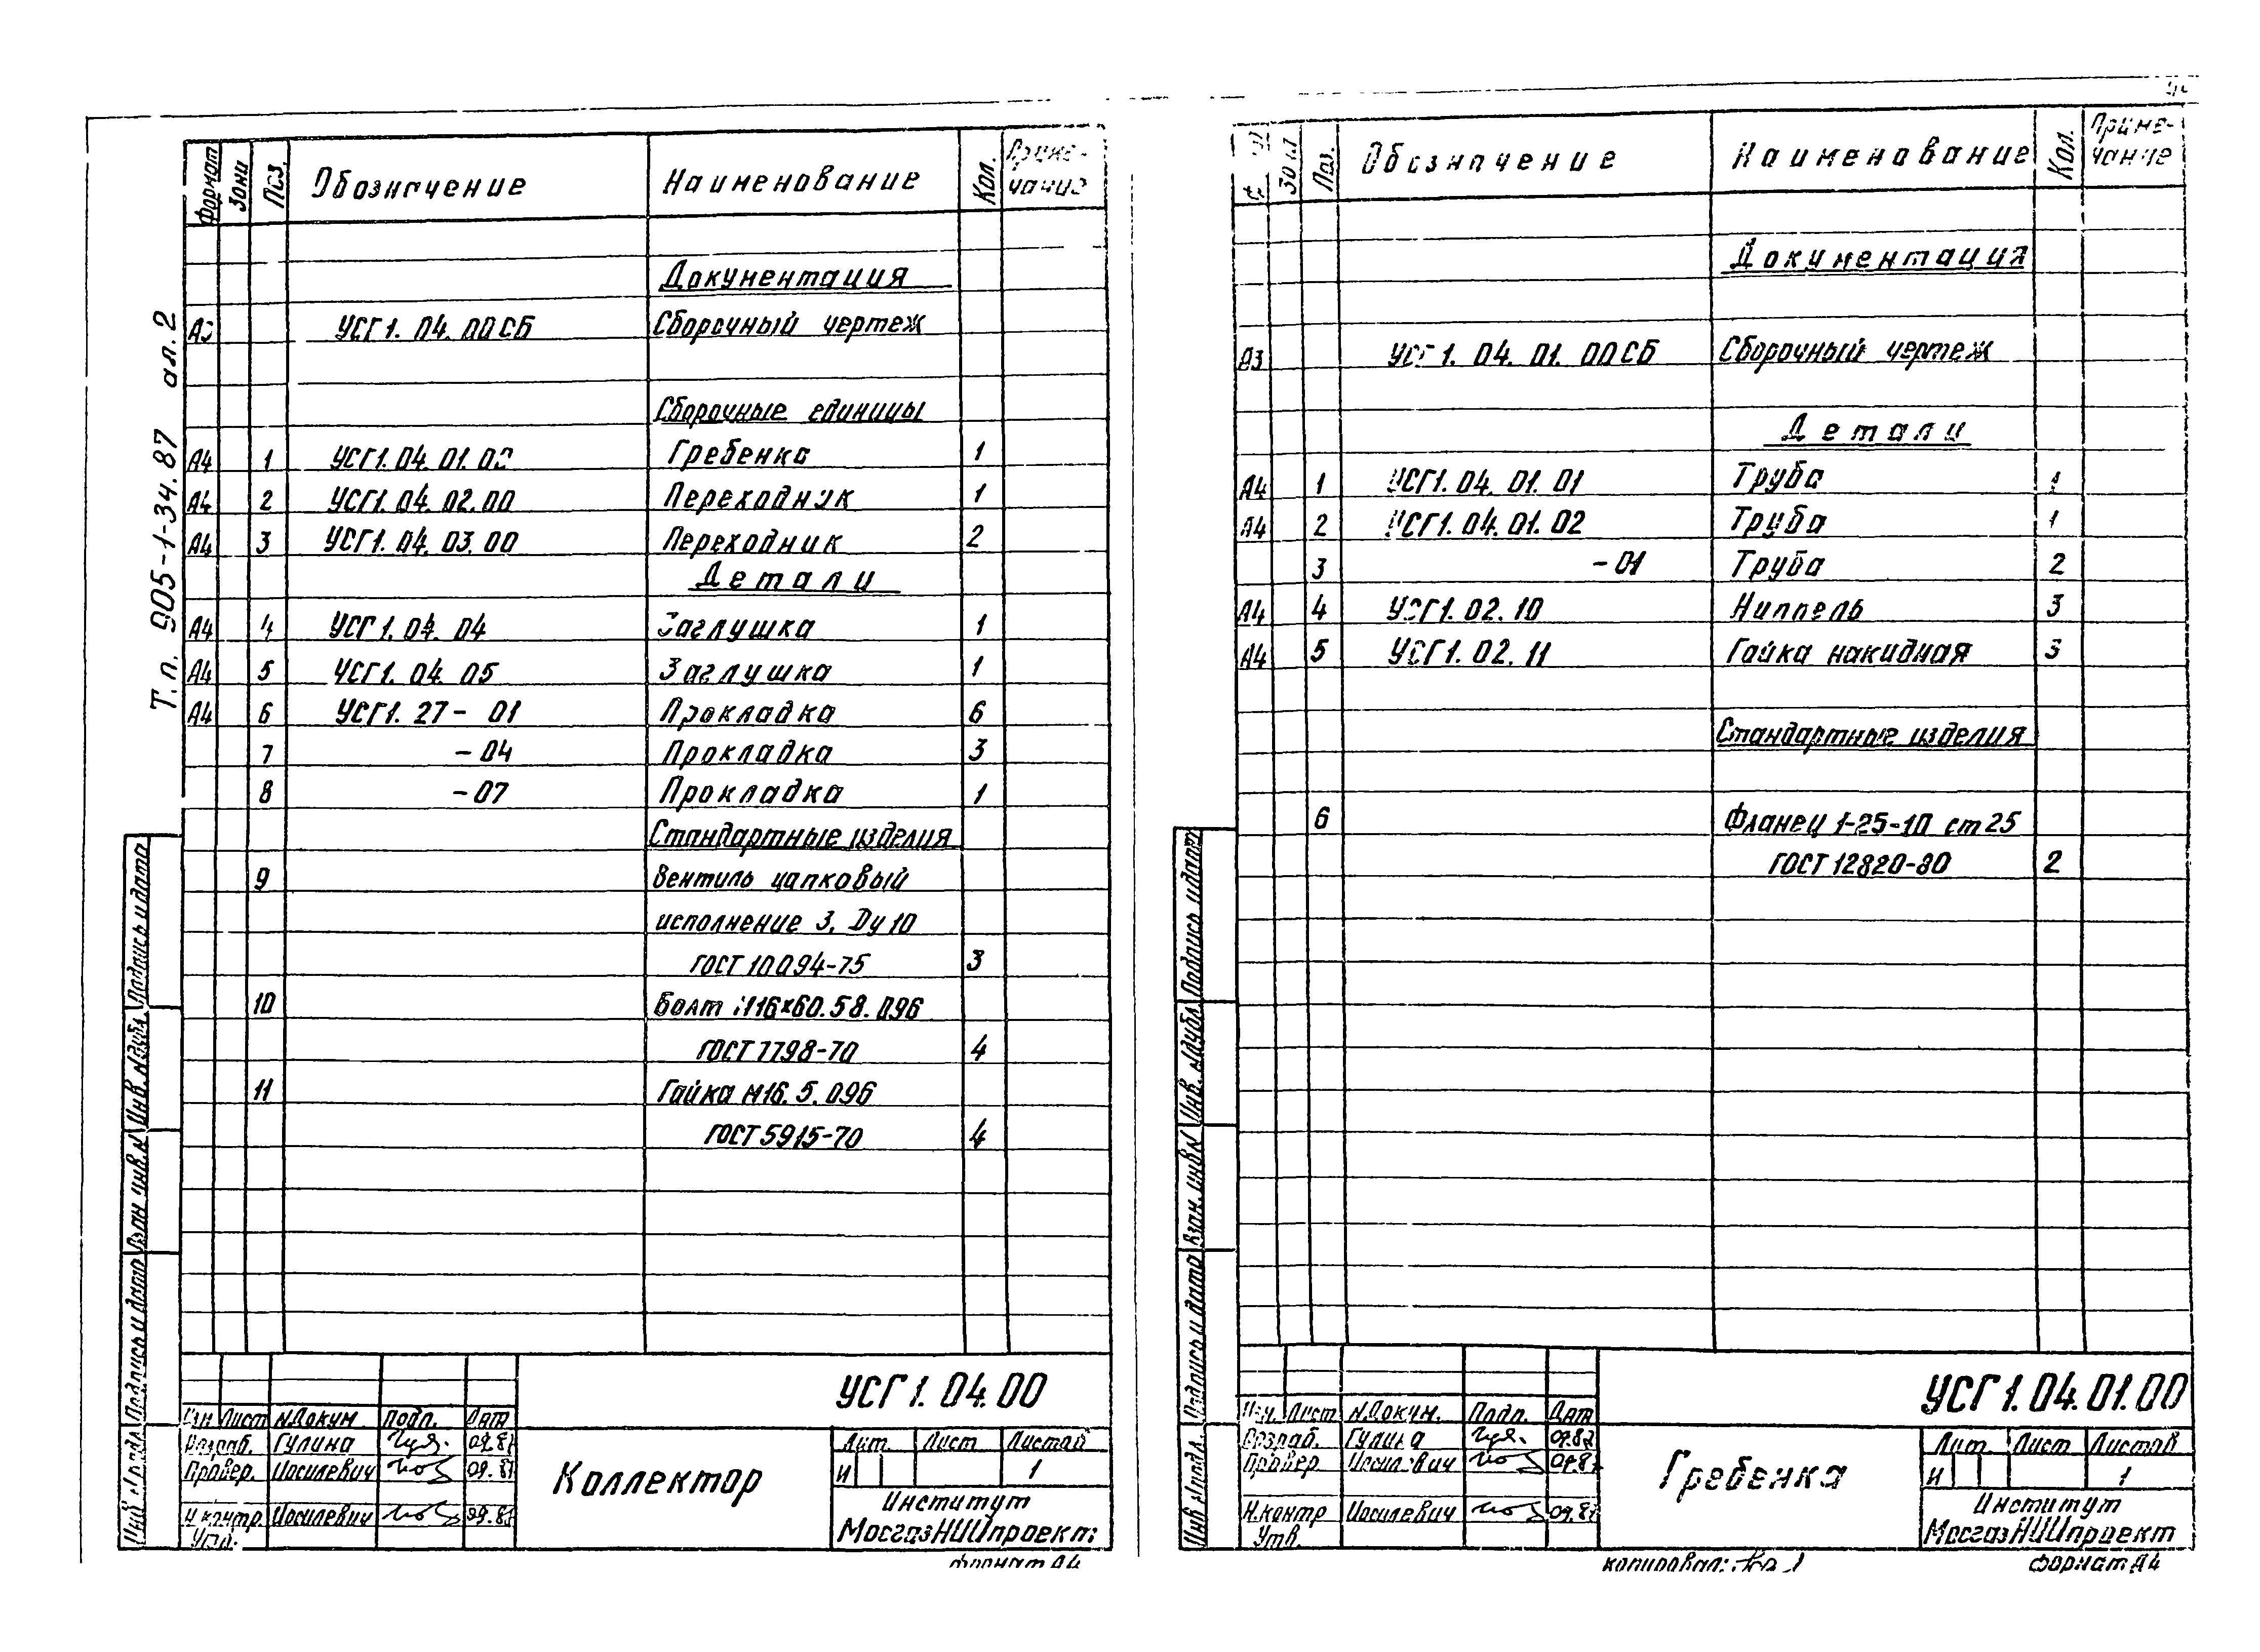 Т.п. 905-1-34.87 ал. 2
Формат Зона Поз. Обозначение Наименование Кол. Приме-
чание
Документация
А3 УСГ1. 04. 00 СБ Сборочный чертеж
Сборочные единицы
А4 1 УСГ1. 04. 01. 00 Гребенка 1
А4 2 УСГ1. 04. 02. 00 Переходник 1
А4 3 УСГ1. 04. 03. 00 Переходник 2
Детали
А4 4 УСГ1. 04. 04 Заглушка 1
А4 5 УСГ1. 04. 05 Заглушка 1
А4 6 УСГ1. 27 - 01 Прокладка 6
7 - 04 Прокладка 3
8 - 07 Прокладка 1
Стандартные изделия
9 Вентиль цапковый
исполнение 3. Dу 10
ГОСТ 10094-75 3
10 Болт М16х60. 58. 096
ГОСТ 7798-70 4
11 Гайка М16. 5. 096
ГОСТ 5915-70 4
Подпись и дата
Инв. № дубл.
Взам. инв. №
Подпись и дата
Инв. № подл.
УСГ1. 04. 00
Изм. Лист №Докум. Подп. Дата
Разраб. Гулина 09.87
Провер. Иосилевич 09.87
Н.контр. Иосилевич 09.87
Утв.
Коллектор
Лит. Лист Листов
И 1
Институт
МосгазНИИпроект
формат А4
Зона Поз. Обозначение Наименование Кол. Приме-
чание
Документация
А3 УСГ1. 04. 01. 00 СБ Сборочный чертеж
Детали
А4 1 УСГ1. 04. 01. 01 Труба 1
А4 2 УСГ1. 04. 01. 02 Труба 1
3 - 01 Труба 2
А4 4 УСГ1. 02. 10 Ниппель 3
А4 5 УСГ1. 02. 11 Гайка накидная 3
Стандартные изделия
6 Фланец 1-25-10 ст 25
ГОСТ 12820-80 2
Подпись и дата
Инв. № дубл.
Взам. инв. №
Подпись и дата
Инв. № подл.
УСГ1. 04. 01. 00
Изм. Лист №Докум. Подп. Дата
Разраб. Гулина 09.87
Провер. Иосилевич 09.87
Н.контр Иосилевич 09.87
Утв.
Гребенка
Лит. Лист Листов
И 1
Институт
МосгазНИИпроект
копировал:
формат А4